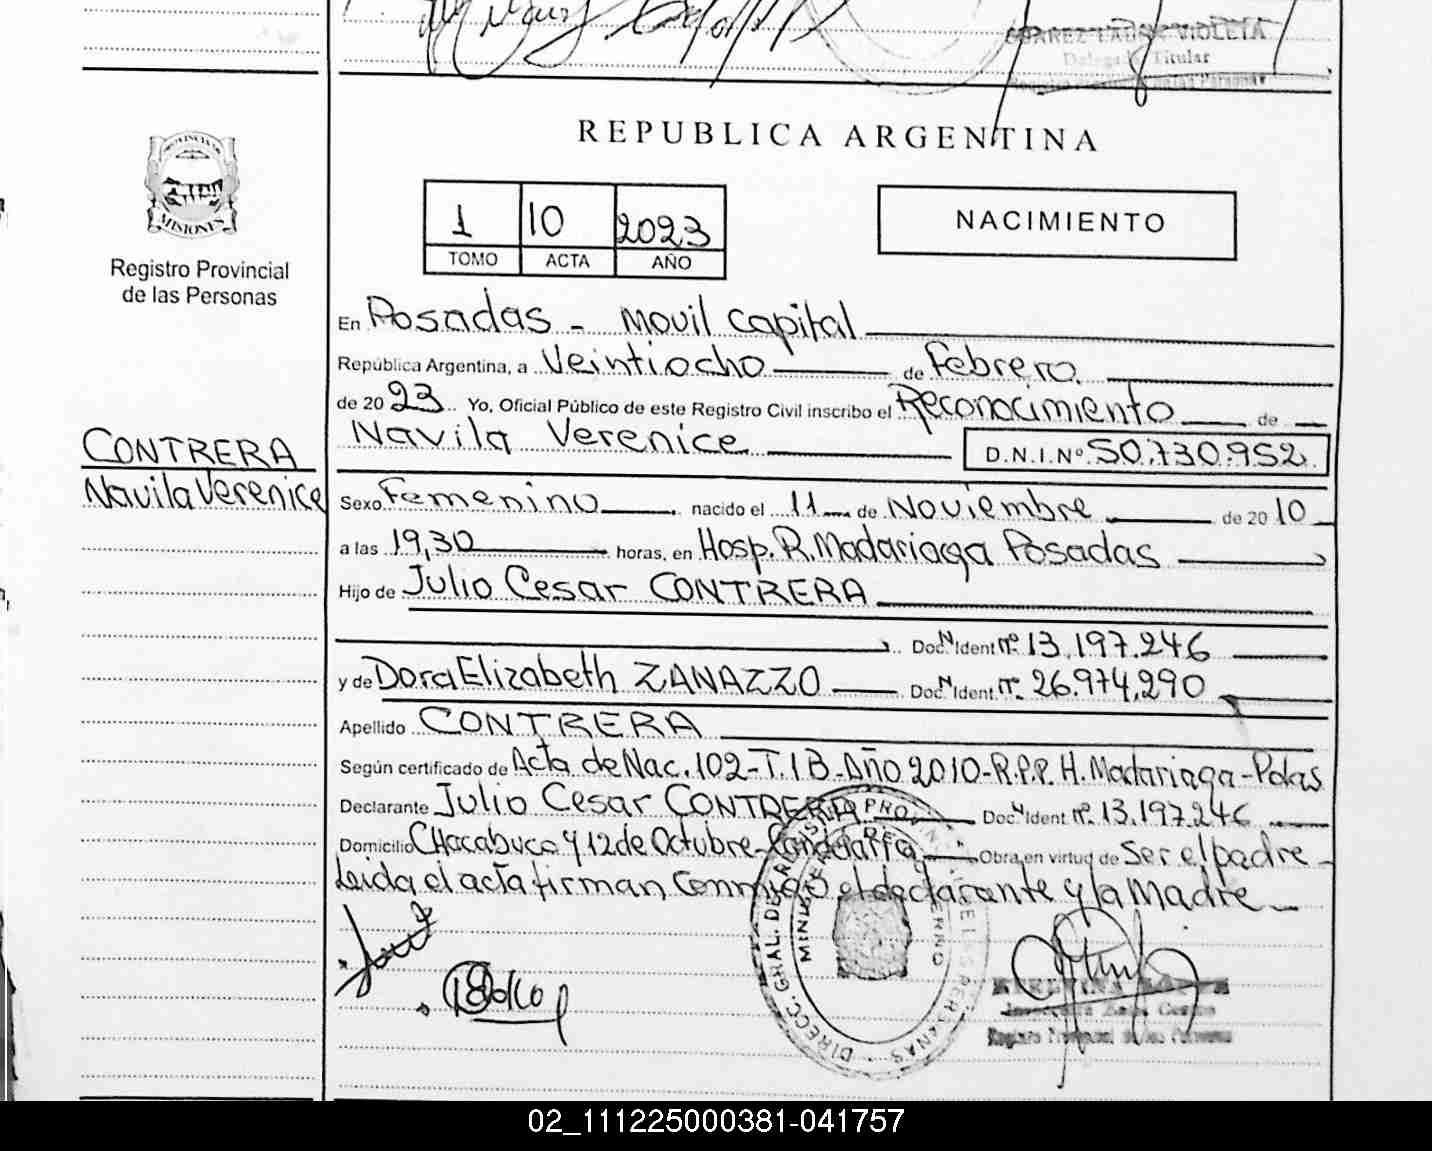 SUAREZ LAURA VIOLETA
Delegada Titular
REPUBLICA ARGENTINA
PROVINCIA DE
MISIONES
Registro Provincial
de las Personas
1 10 2023
TOMO ACTA AÑO
NACIMIENTO
CONTRERA
Navila Verenice
En Posadas - Movil Capital
República Argentina, a Veintiocho de Febrero
de 2023 Yo, Oficial Público de este Registro Civil inscribo el Reconocimiento de
Navila Verenice D.N.I.Nº 50.730.952
Sexo Femenino nacido el 11 de Noviembre de 2010
a las 19,30 horas, en Hosp. R. Madariaga Posadas
Hijo de Julio Cesar CONTRERA
Doc.N Ident nº 13.197.246
y de Dora Elizabeth ZANAZZO Doc.N Ident. nº 26.974.290
Apellido CONTRERA
Según certificado de Acta de Nac. 102-T.1B-Año 2010-R.P.P. H. Madariaga-Pdas
Declarante Julio Cesar CONTRERA Doc.N Ident nº 13.197.246
Domicilio Chacabuco y 12 de Octubre- Obra en virtud de Ser el padre
Leida el acta firman, Conmigo el declarante y la Madre
DIRECC. GRAL. DE REGISTRO PROVINCIAL DE LAS PERSONAS
MINIST. DE GOBIERNO
Registro Provincial de las Personas
02_111225000381-041757